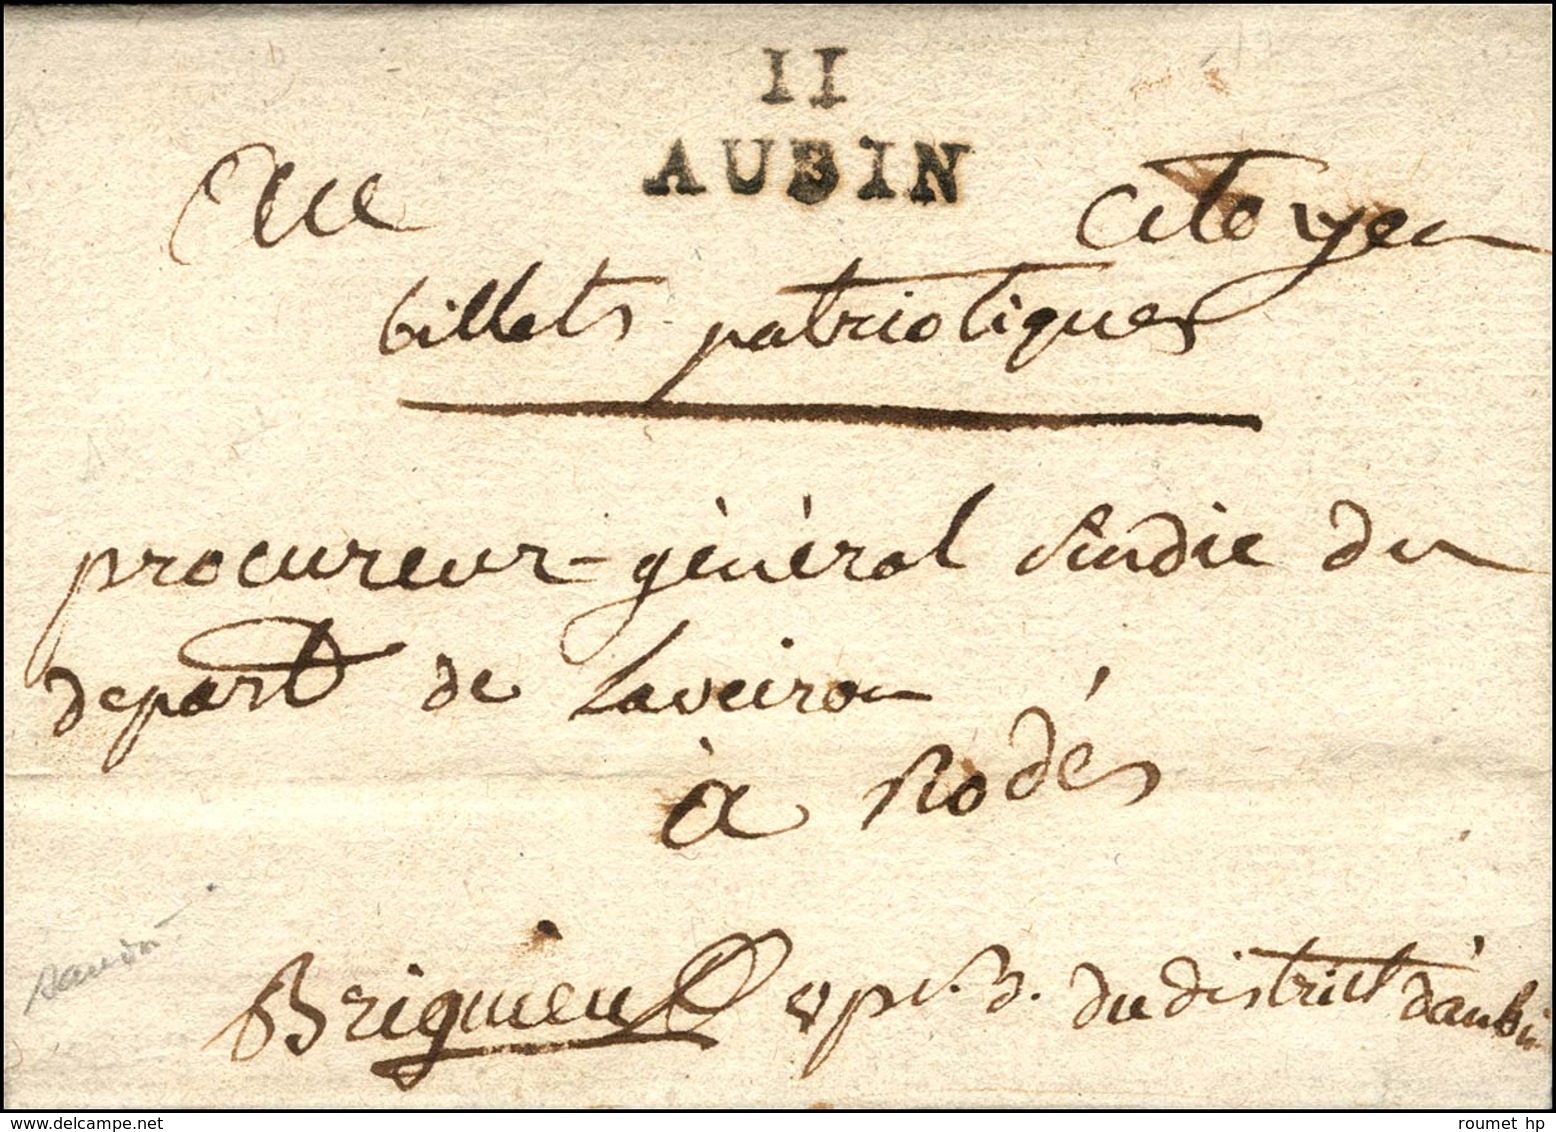 11
AUBIN
Au Citoyen
billets patriotiques
procureur-général Sindic du
depart de Laveiron
à Rodés
Brignieu v p r. s. du district d'aubin
roumet hp